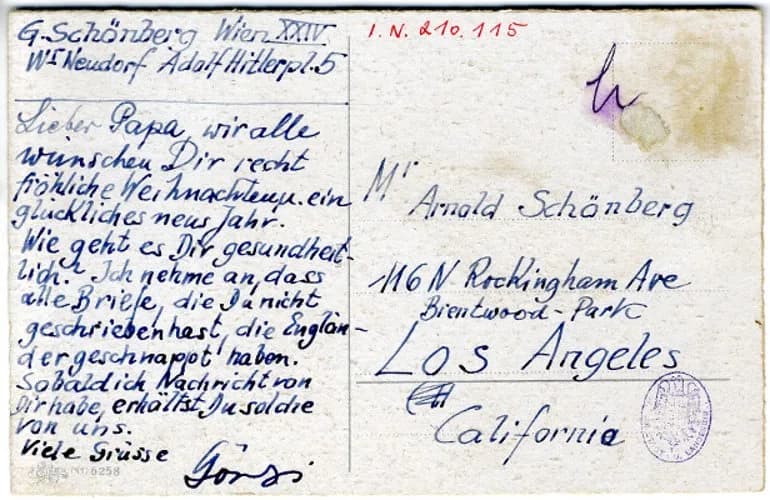 G. Schönberg Wien XXIV
Wr Neudorf Adolf Hitlerpl. 5
Lieber Papa, wir alle
wünschen Dir recht
fröhliche Weihnachten u. ein
glückliches neus Jahr.
Wie geht es Dir gesundheit-
lich? Ich nehme an, dass
alle Briefe, die Du nicht
geschrieben hast, die Englän-
der geschnappt haben.
Sobald ich Nachricht von
Dir habe, erhältst Du solche
von uns.
Viele Grüsse
Görgi
Nr. 6258
I.N. 210.115
Mr
Arnold Schönberg
116 N Rockingham Ave
Brentwood-Park
Los Angeles
California